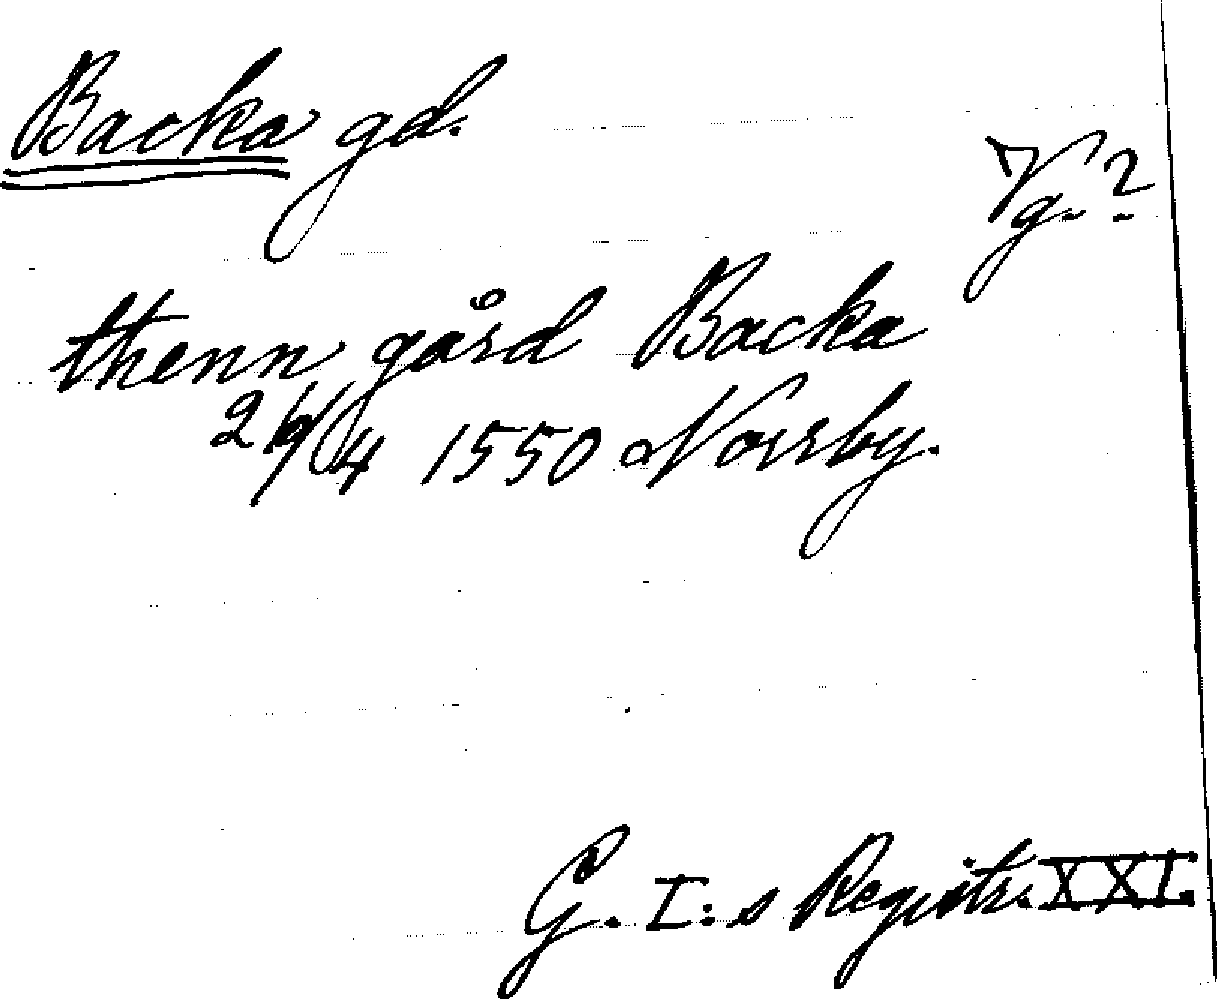 Backa gd.
Vg. ?
thenn gård Backa
26/4 1550 Norrby.
G. I:s Registr. XXI.